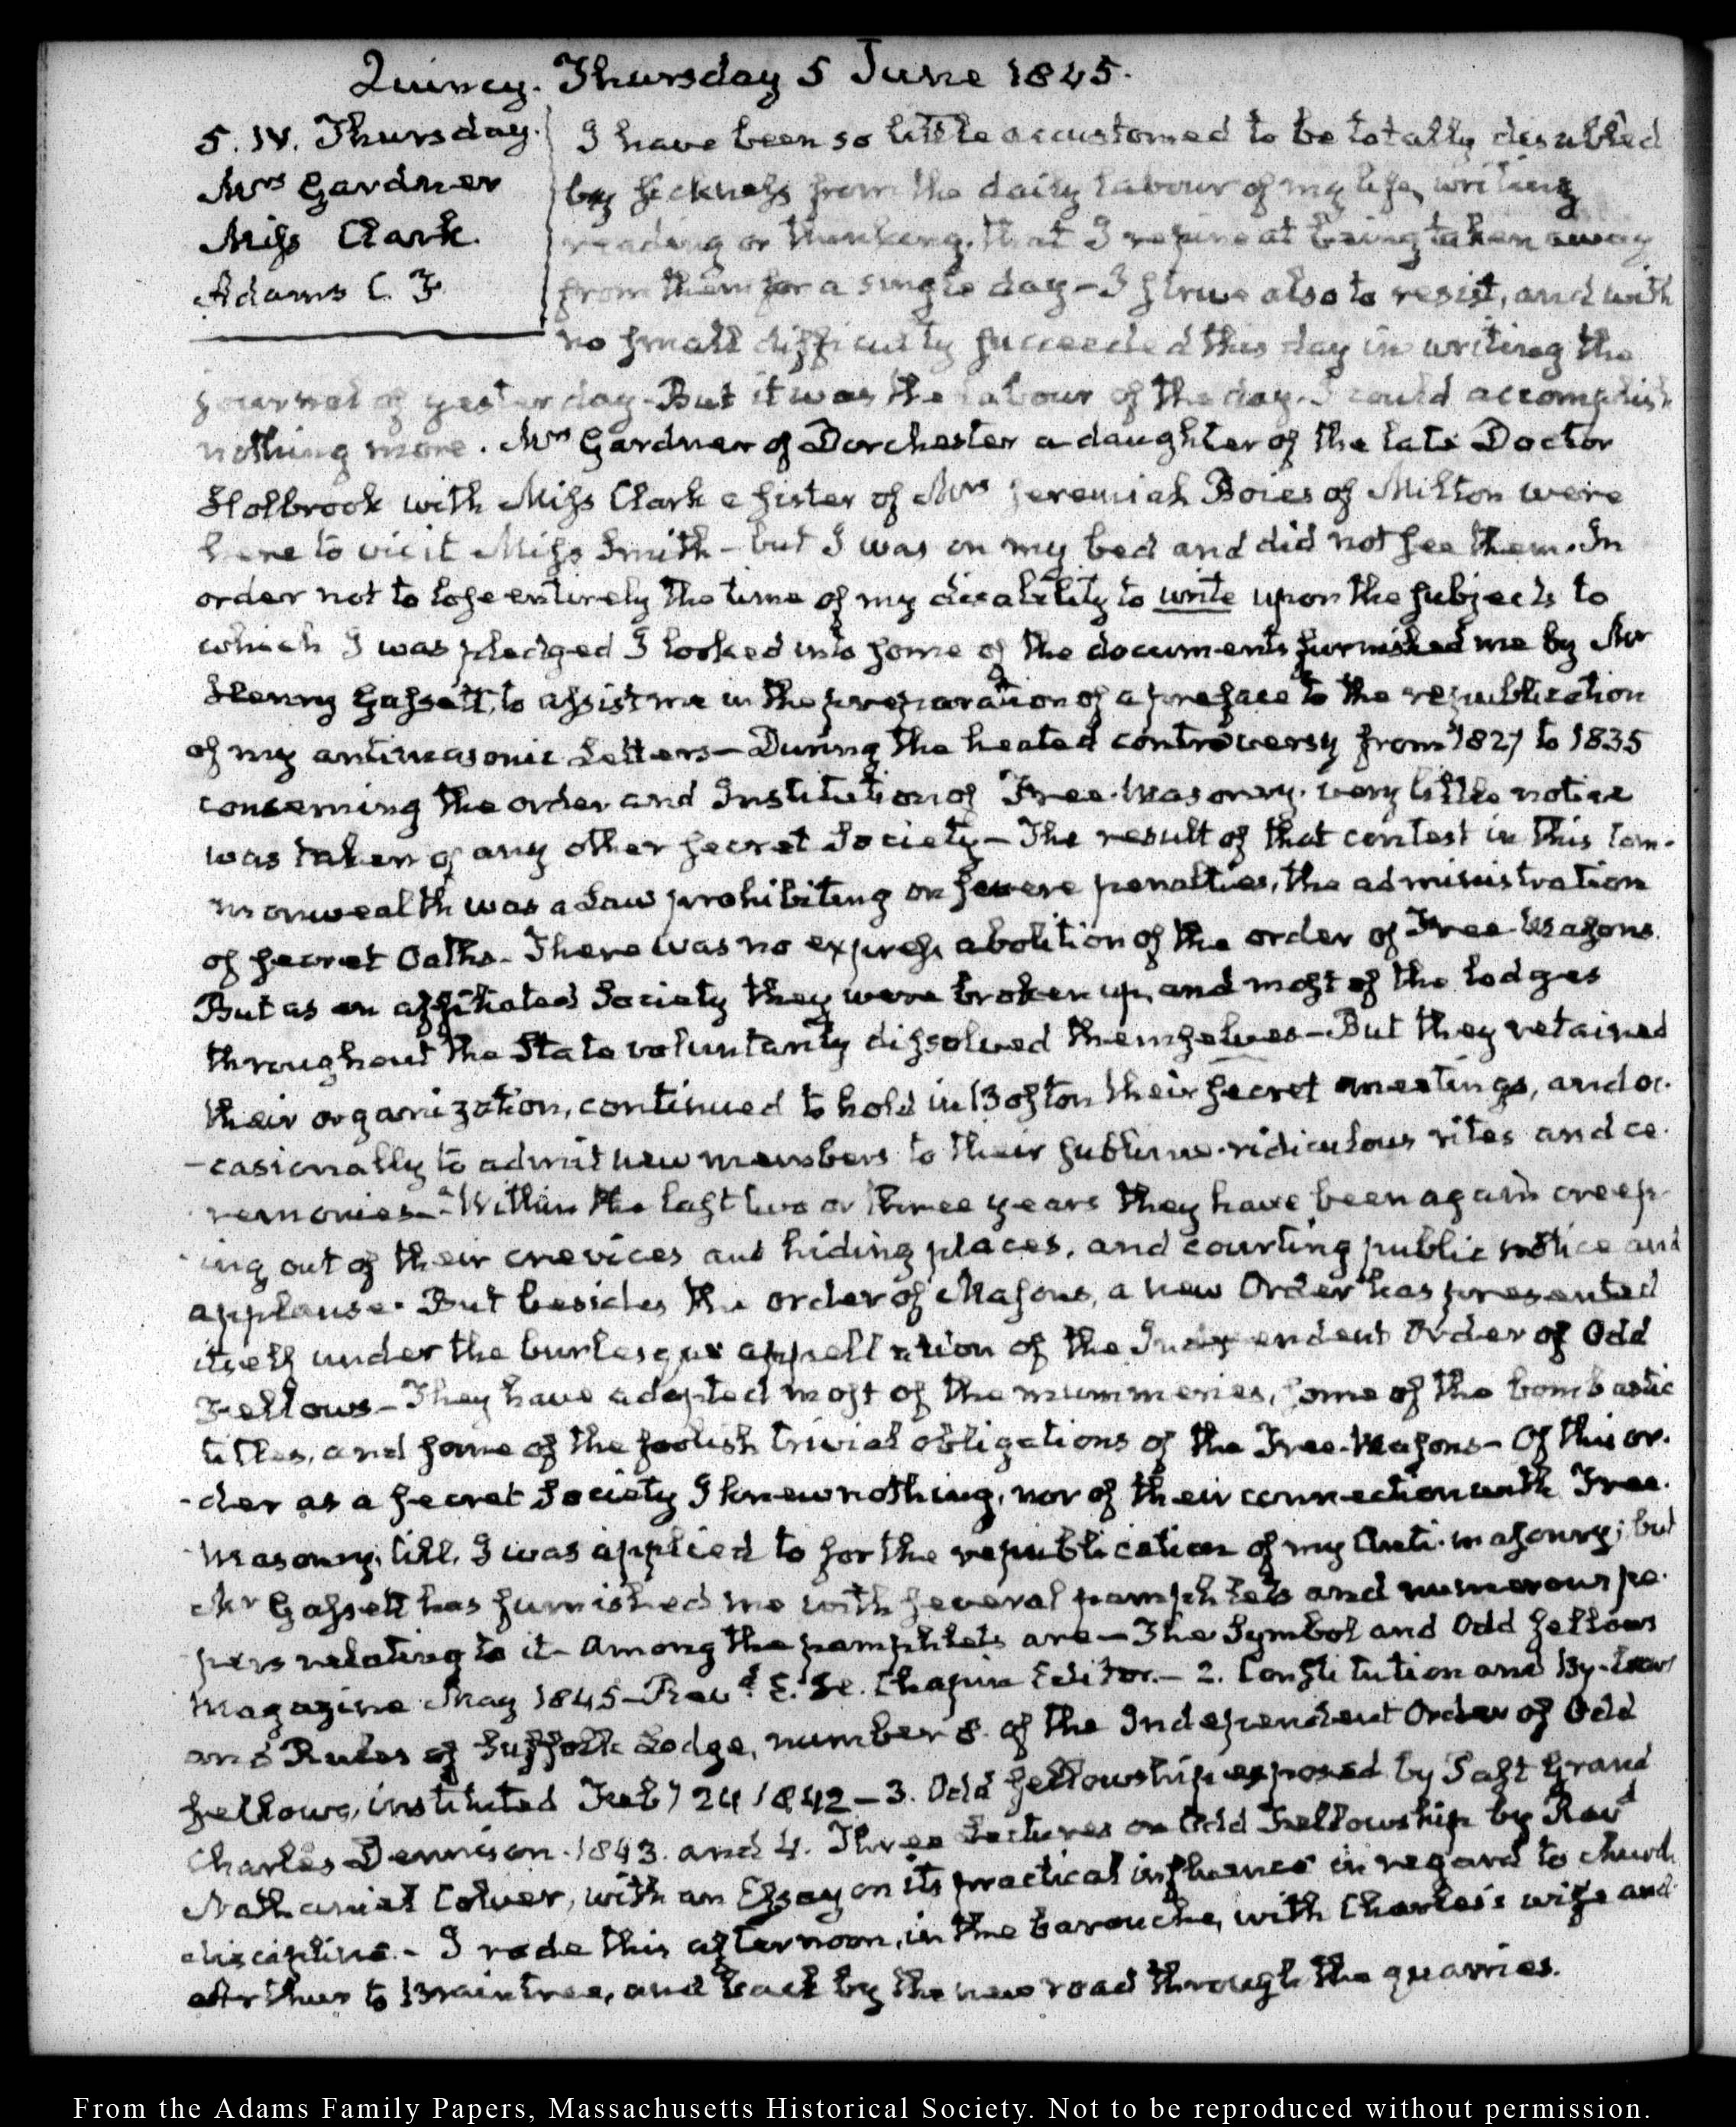 Quincy. Thursday 5 June 1845.
5. IV. Thursday.
Mrs Gardner
Miss Clark.
Adams C. F.
I have been so little accustomed to be totally disabled
by sickness from the daily labour of my life, writing
reading or thinking, that I repine at being taken away
from them for a single day – I strive also to resist, and with
no small difficulty succeeded this day in writing the
journal of yesterday – But it was the labour of the day. I could accomplish
nothing more. Mrs Gardner of Dorchester a daughter of the late Doctor
Holbrook with Miss Clark a sister of Mrs Jeremiah Boies of Milton were
here to visit Miss Smith – but I was on my bed and did not see them. In
order not to lose entirely the time of my disability to write upon the subjects to
which I was pledged I looked into some of the documents furnished me by Mr
Henry Gassett, to assist me in the preparation of a preface to the republication
of my antimasonic Letters – During the heated controversy from 1827 to 1835
concerning the order and Institution of Free-Masonry, very little notice
was taken of any other secret Society – The result of that contest in this Com-
monwealth was a Law prohibiting on severe penalties, the administration
of secret Oaths – There was no express abolition of the order of Free-Masons.
But as an affiliated Society they were broken up, and most of the lodges
throughout the State voluntarily dissolved themselves – But they retained
their organization, continued to hold in Boston their secret meetings, and oc-
-casionally to admit new members to their sublime-ridiculous rites and ce-
remonies – Within the last two or three years they have been again creep-
ing out of their crevices and hiding places, and courting public notice and
applause. But besides the order of Masons, a new Order has presented
itself under the burlesque appellation of the Independent Order of Odd
Fellows – They have adopted most of the mummeries, some of the bombastic
titles, and some of the foolish trivial obligations of the Free-Masons – Of this or-
-der as a secret Society I knew nothing, nor of their connection with Free-
-Masonry, till I was applied to for the republication of my Anti-masonry; but
Mr Gassett has furnished me with several pamphlets and numerous pa-
pers relating to it – Among the pamphlets are – The Symbol and Odd fellows
Magazine May 1845 – Revd E. H. Chapin Editor. – 2. Constitution and By-Laws
and Rules of Suffolk Lodge, number 8. of the Independent Order of Odd
fellows, instituted Feby 24 1842 – 3. Odd fellowship exposed by Past Grand
Charles Dennison. 1843. and 4. Three Lectures on Odd Fellowship by Revd
Nathaniel Colver, with an Essay on its practical influence in regard to church
discipline. – I rode this afternoon, in the barouche, with Charles's wife and
Arthur to Braintree, and back by the new road through the quarries.
From the Adams Family Papers, Massachusetts Historical Society. Not to be reproduced without permission.